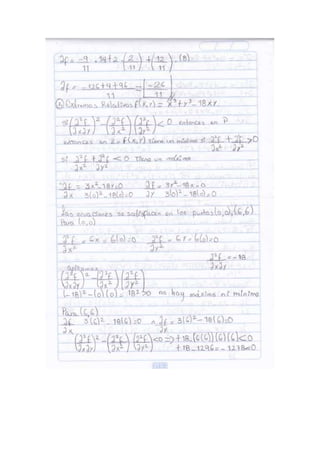 2f = -9/11 . 14 + 2 (2/11) + (12/11) . (8)
2f = -126+4+96/11 = [-26/11]
Extremos Relativos f(x,y) = x³+y³-18xy
si (∂²f/∂x∂y)² - (∂²f/∂x²)(∂²f/∂y²) < 0 entonces en P
entonces en z=f(x,y) tiene un mínimo si ∂²f/∂x² + ∂²f/∂y² > 0
si ∂²f/∂x² + ∂²f/∂y² < 0 tiene un máximo
∂f/∂x = 3x²-18y=0 ∂f/∂y = 3y²-18x=0
3(0)²-18(0)=0 3(0)²-18(0)=0
Las ecuaciones se satisfacen en los puntos (0,0), (6,6)
Para (0,0)
∂²f/∂x² = 6x = 6(0)=0 ∂²f/∂y² = 6y = 6(0)=0
∂²f/∂x∂y = -18
(∂²f/∂x∂y)² - (∂²f/∂x²)(∂²f/∂y²)
(-18)² - (0)(0) = 18²>0 no hay máximo ni mínimo
Para (6,6)
∂f/∂x 3(6)²-18(6)=0 ∂f/∂y = 3(6)²-18(6)=0
(∂²f/∂x∂y)² - (∂²f/∂x²)(∂²f/∂y²) <0 => +18-(6(6))(6)(6)<0
+18-1296=-1278<0